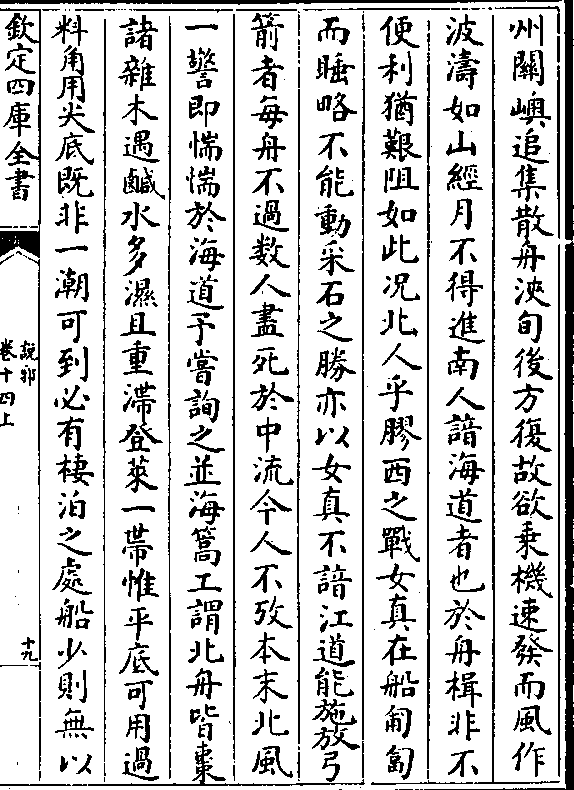 州關嶼追集散舟浹旬後方復故欲乗機速發而風作
波濤如山經月不得進南人諳海道者也於舟楫非不
便利猶艱阻如此况北人乎膠西之戰女真在船匍匐
而睡略不能動采石之勝亦以女真不諳江道能施放弓
箭者每舟不過數人盡死於中流今人不攷本末北風
一警即惴惴於海道予嘗詢之並海篙工謂北舟皆棗
諸雜木遇鹹水多濕且重滯登萊一帶惟平底可用過
料角用尖底既非一潮可到必有棲泊之處船少則無以
欽定四庫全書
說郛
卷十四上
十九